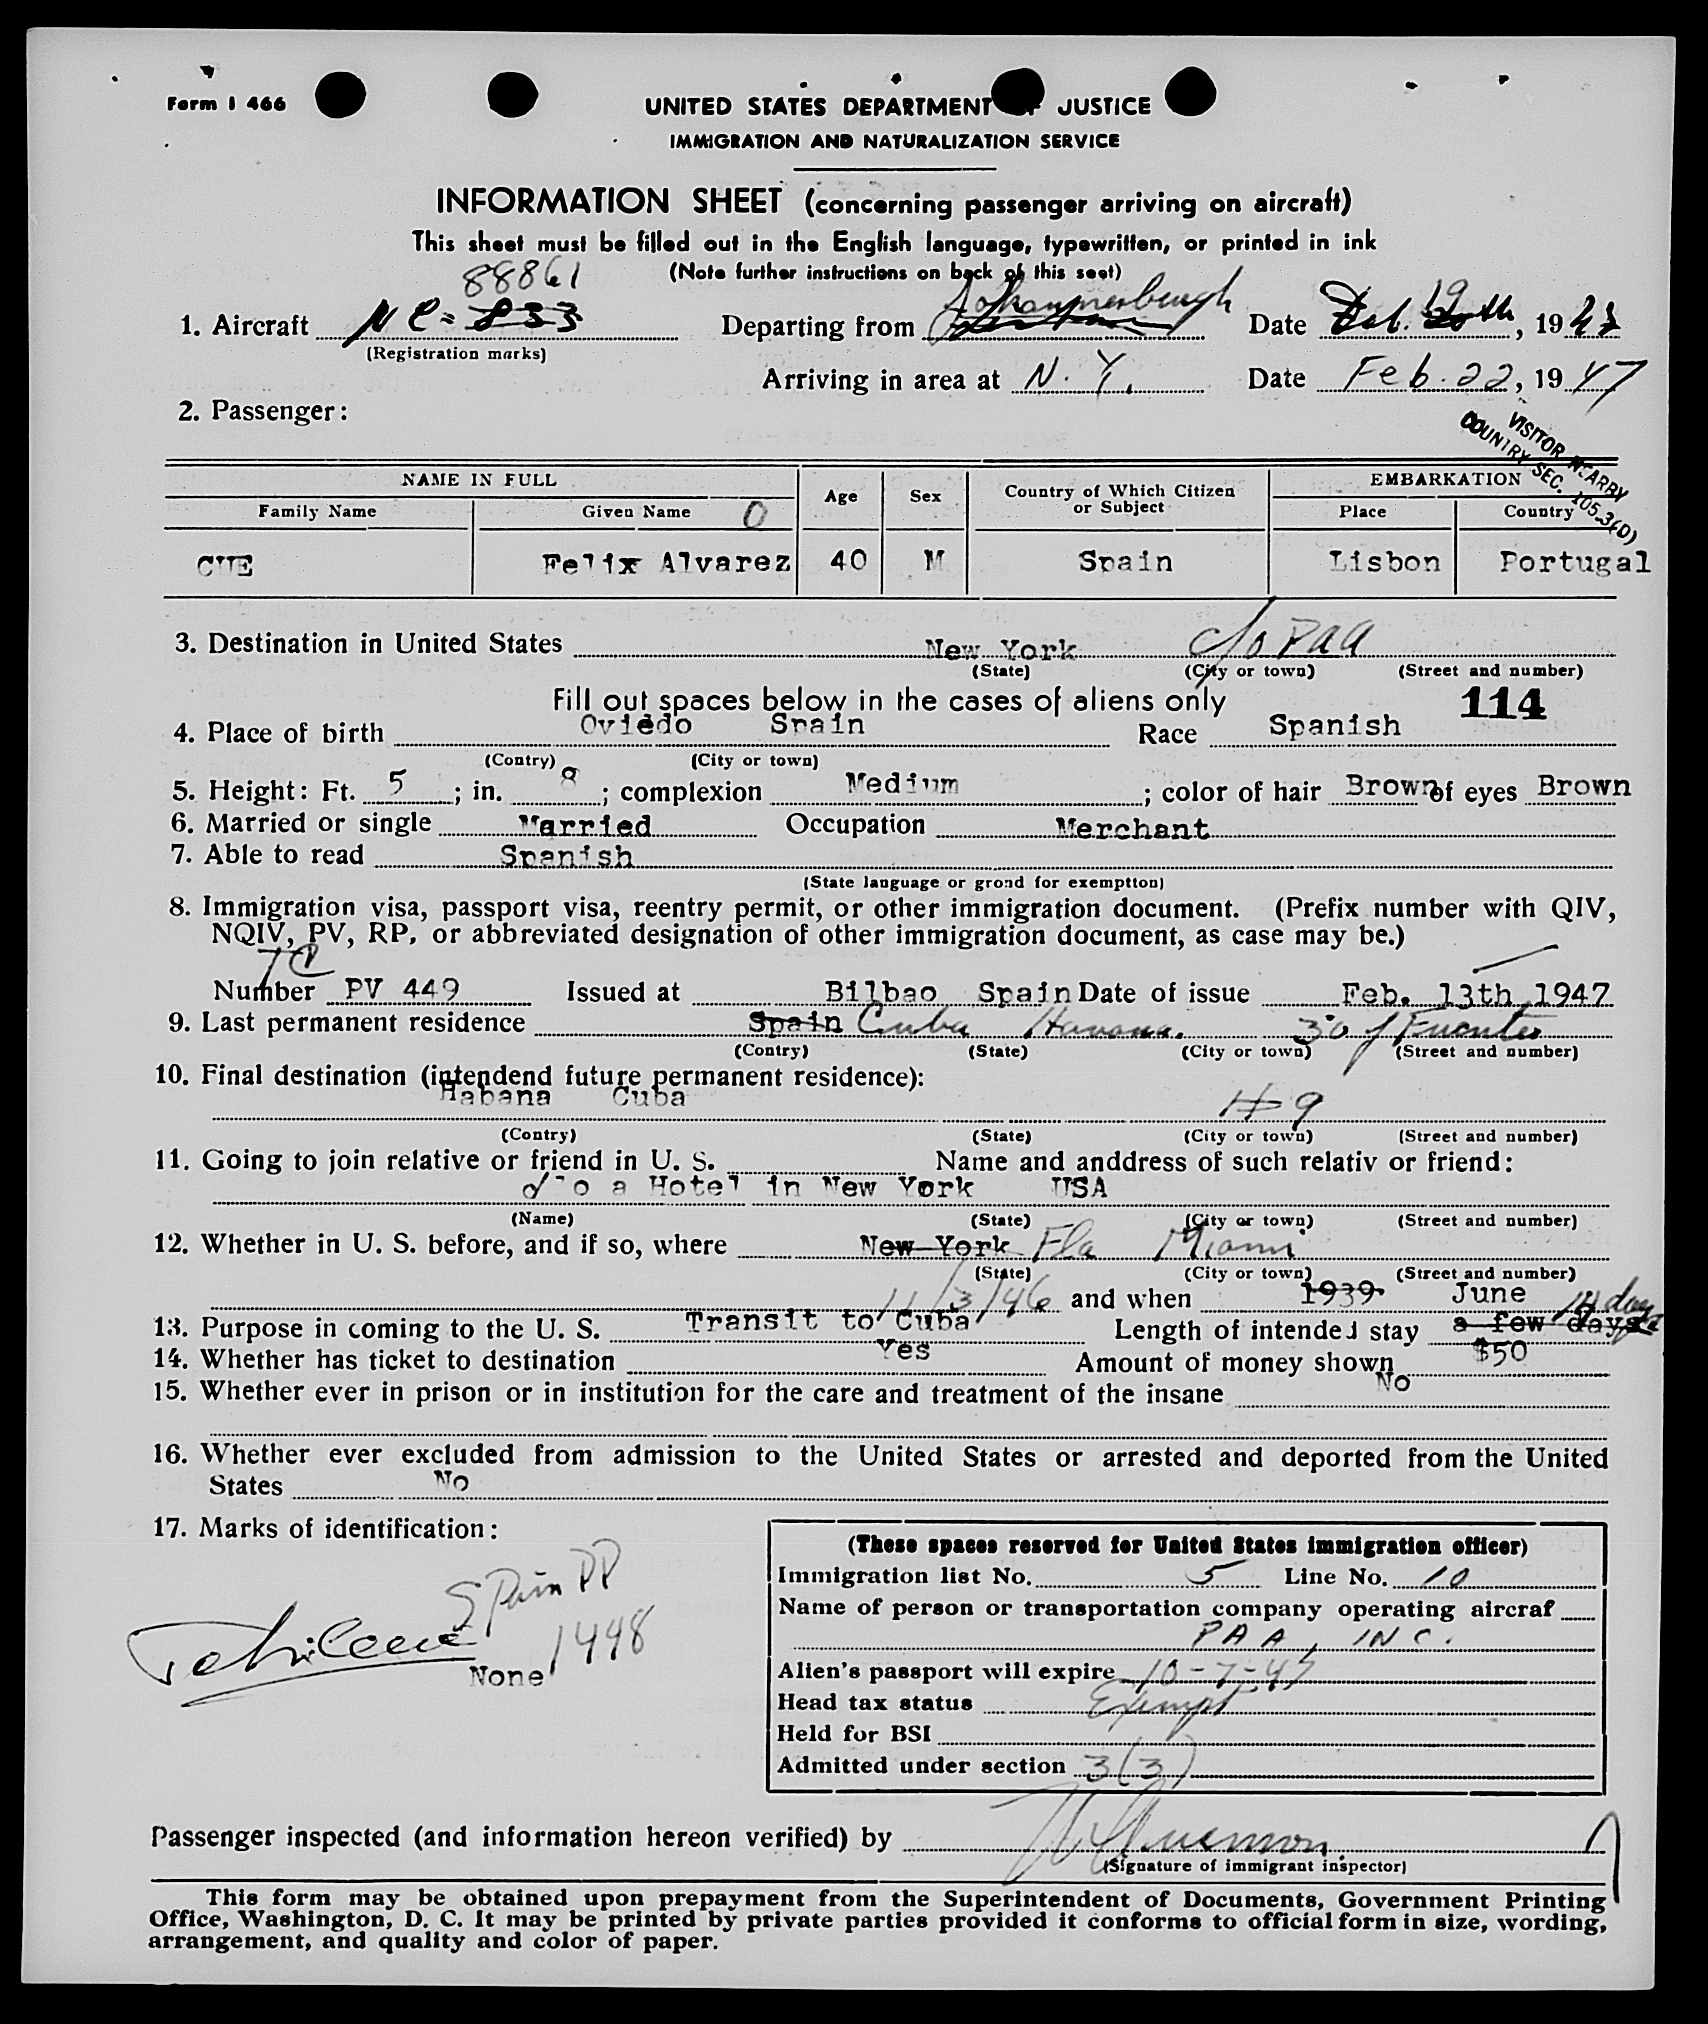 Form I 466
UNITED STATES DEPARTMENT OF JUSTICE
IMMIGRATION AND NATURALIZATION SERVICE
INFORMATION SHEET (concerning passenger arriving on aircraft)
This sheet must be filled out in the English language, typewritten, or printed in ink
(Note further instructions on back of this seet)
88861
1. Aircraft NC- 833 Departing from Johannesburgh Date Feb. 19 20th, 1947
(Registration marks)
Arriving in area at N. Y. Date Feb. 22, 1947
2. Passenger:
VISITOR NEARBY
COUNTRY SEC. 105.3(D)
NAME IN FULL Age Sex Country of Which Citizen or Subject EMBARKATION
Family Name Given Name O Place Country
CUE Felix Alvarez 40 M Spain Lisbon Portugal
3. Destination in United States New York c/o PAA
(State) (City or town) (Street and number)
Fill out spaces below in the cases of aliens only 114
4. Place of birth Oviedo Spain Race Spanish
(Contry) (City or town)
5. Height: Ft. 5 ; in. 8 ; complexion Medium ; color of hair Brown of eyes Brown
6. Married or single Married Occupation Merchant
7. Able to read Spanish
(State language or grond for exemption)
8. Immigration visa, passport visa, reentry permit, or other immigration document. (Prefix number with QIV,
NQIV, PV, RP, or abbreviated designation of other immigration document, as case may be.)
Number PV 449 Issued at Bilbao Spain Date of issue Feb. 13th 1947
9. Last permanent residence Spain Cuba Havana. 30 y Fuentes
(Contry) (State) (City or town) (Street and number)
10. Final destination (intendend future permanent residence):
Habana Cuba # 9
(Contry) (State) (City or town) (Street and number)
11. Going to join relative or friend in U. S. Name and anddress of such relativ or friend:
to a Hotel in New York USA
(Name) (State) (City or town) (Street and number)
12. Whether in U. S. before, and if so, where New York Fla Miami
(State) (City or town) (Street and number)
11/3/46 and when 1939 June
13. Purpose in coming to the U. S. Transit to Cuba Length of intended stay a few days 14 days
14. Whether has ticket to destination Yes Amount of money shown $50
15. Whether ever in prison or in institution for the care and treatment of the insane No
16. Whether ever excluded from admission to the United States or arrested and deported from the United
States No
17. Marks of identification:
Spain PP
1498
None
(These spaces reserved for United States immigration officer)
Immigration list No. 5 Line No. 10
Name of person or transportation company operating aircraf
PAA, INC.
Alien's passport will expire 10-7-47
Head tax status Exempt
Held for BSI
Admitted under section 3(3)
Passenger inspected (and information hereon verified) by
(Signature of immigrant inspector)
This form may be obtained upon prepayment from the Superintendent of Documents, Government Printing
Office, Washington, D. C. It may be printed by private parties provided it conforms to official form in size, wording,
arrangement, and quality and color of paper.